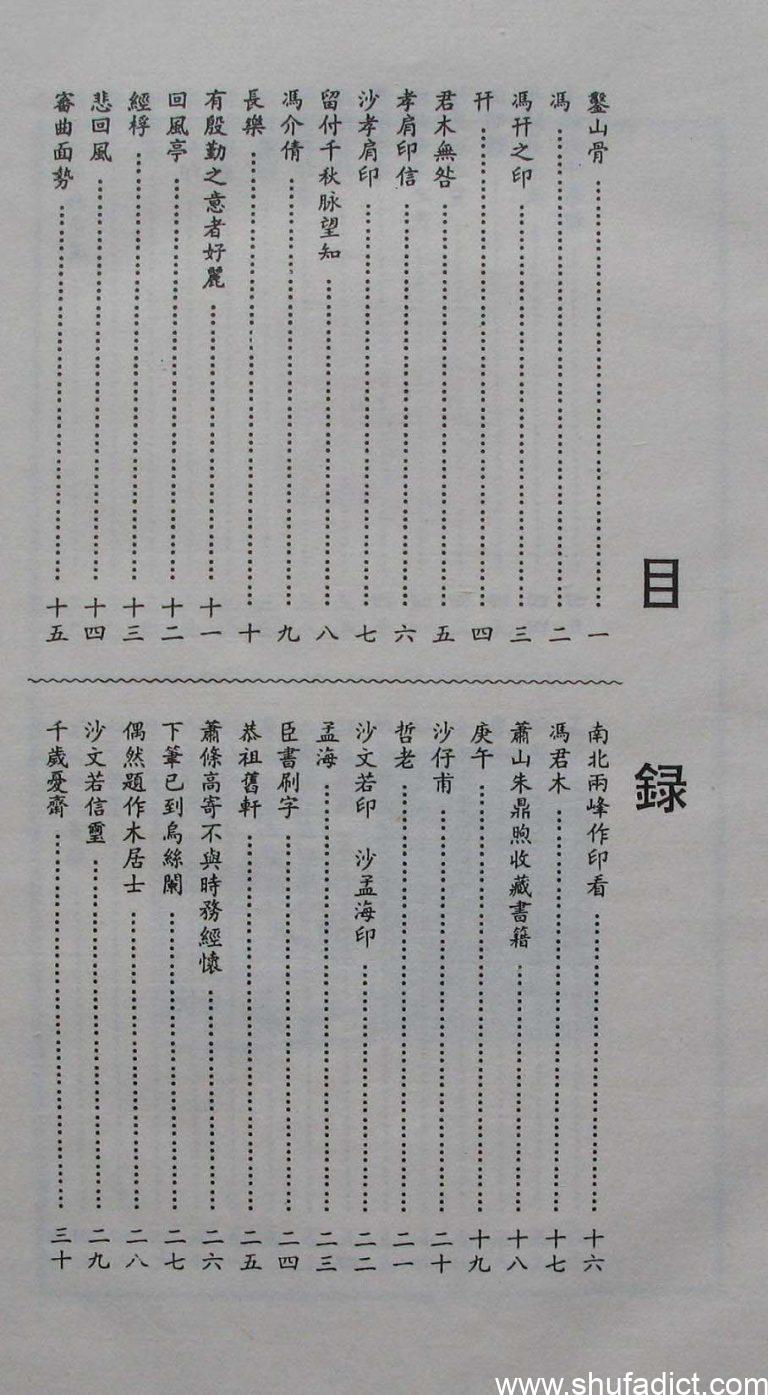 目錄
鑿山骨……一
馮……二
馮幵之印……三
幵……四
君木無咎……五
孝肩印信……六
沙孝肩印……七
留付千秋脉望知……八
馮介倩……九
長樂……十
有殷勤之意者好麗……十一
回風亭……十二
經桴……十三
悲回風……十四
審曲面勢……十五
南北兩峰作印看……十六
馮君木……十七
蕭山朱鼎煦收藏書籍……十八
庚午……十九
沙仔甫……二十
哲老……二一
沙文若印　沙孟海印……二二
孟海……二三
臣書刷字……二四
恭祖舊軒……二五
蕭條高寄不與時務經懷……二六
下筆已到烏絲闌……二七
偶然題作木居士……二八
沙文若信璽……二九
千歲憂齋……三十
www.shufadict.com